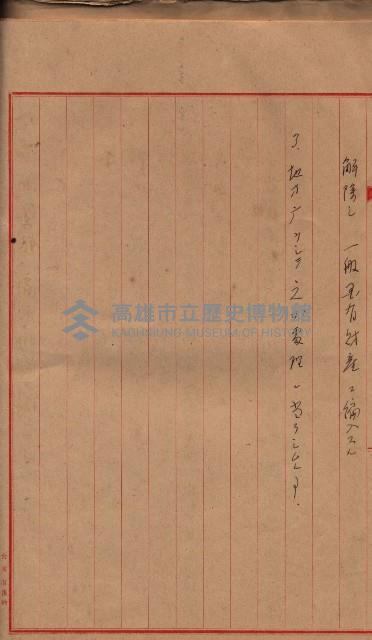 解除シ一般国有財産ニ編入スル
3. 地方庁ヲシテ之ガ処理ニ当ラシムルコト.
高雄市立歷史博物館
KAOHSIUNG MUSEUM OF HISTORY